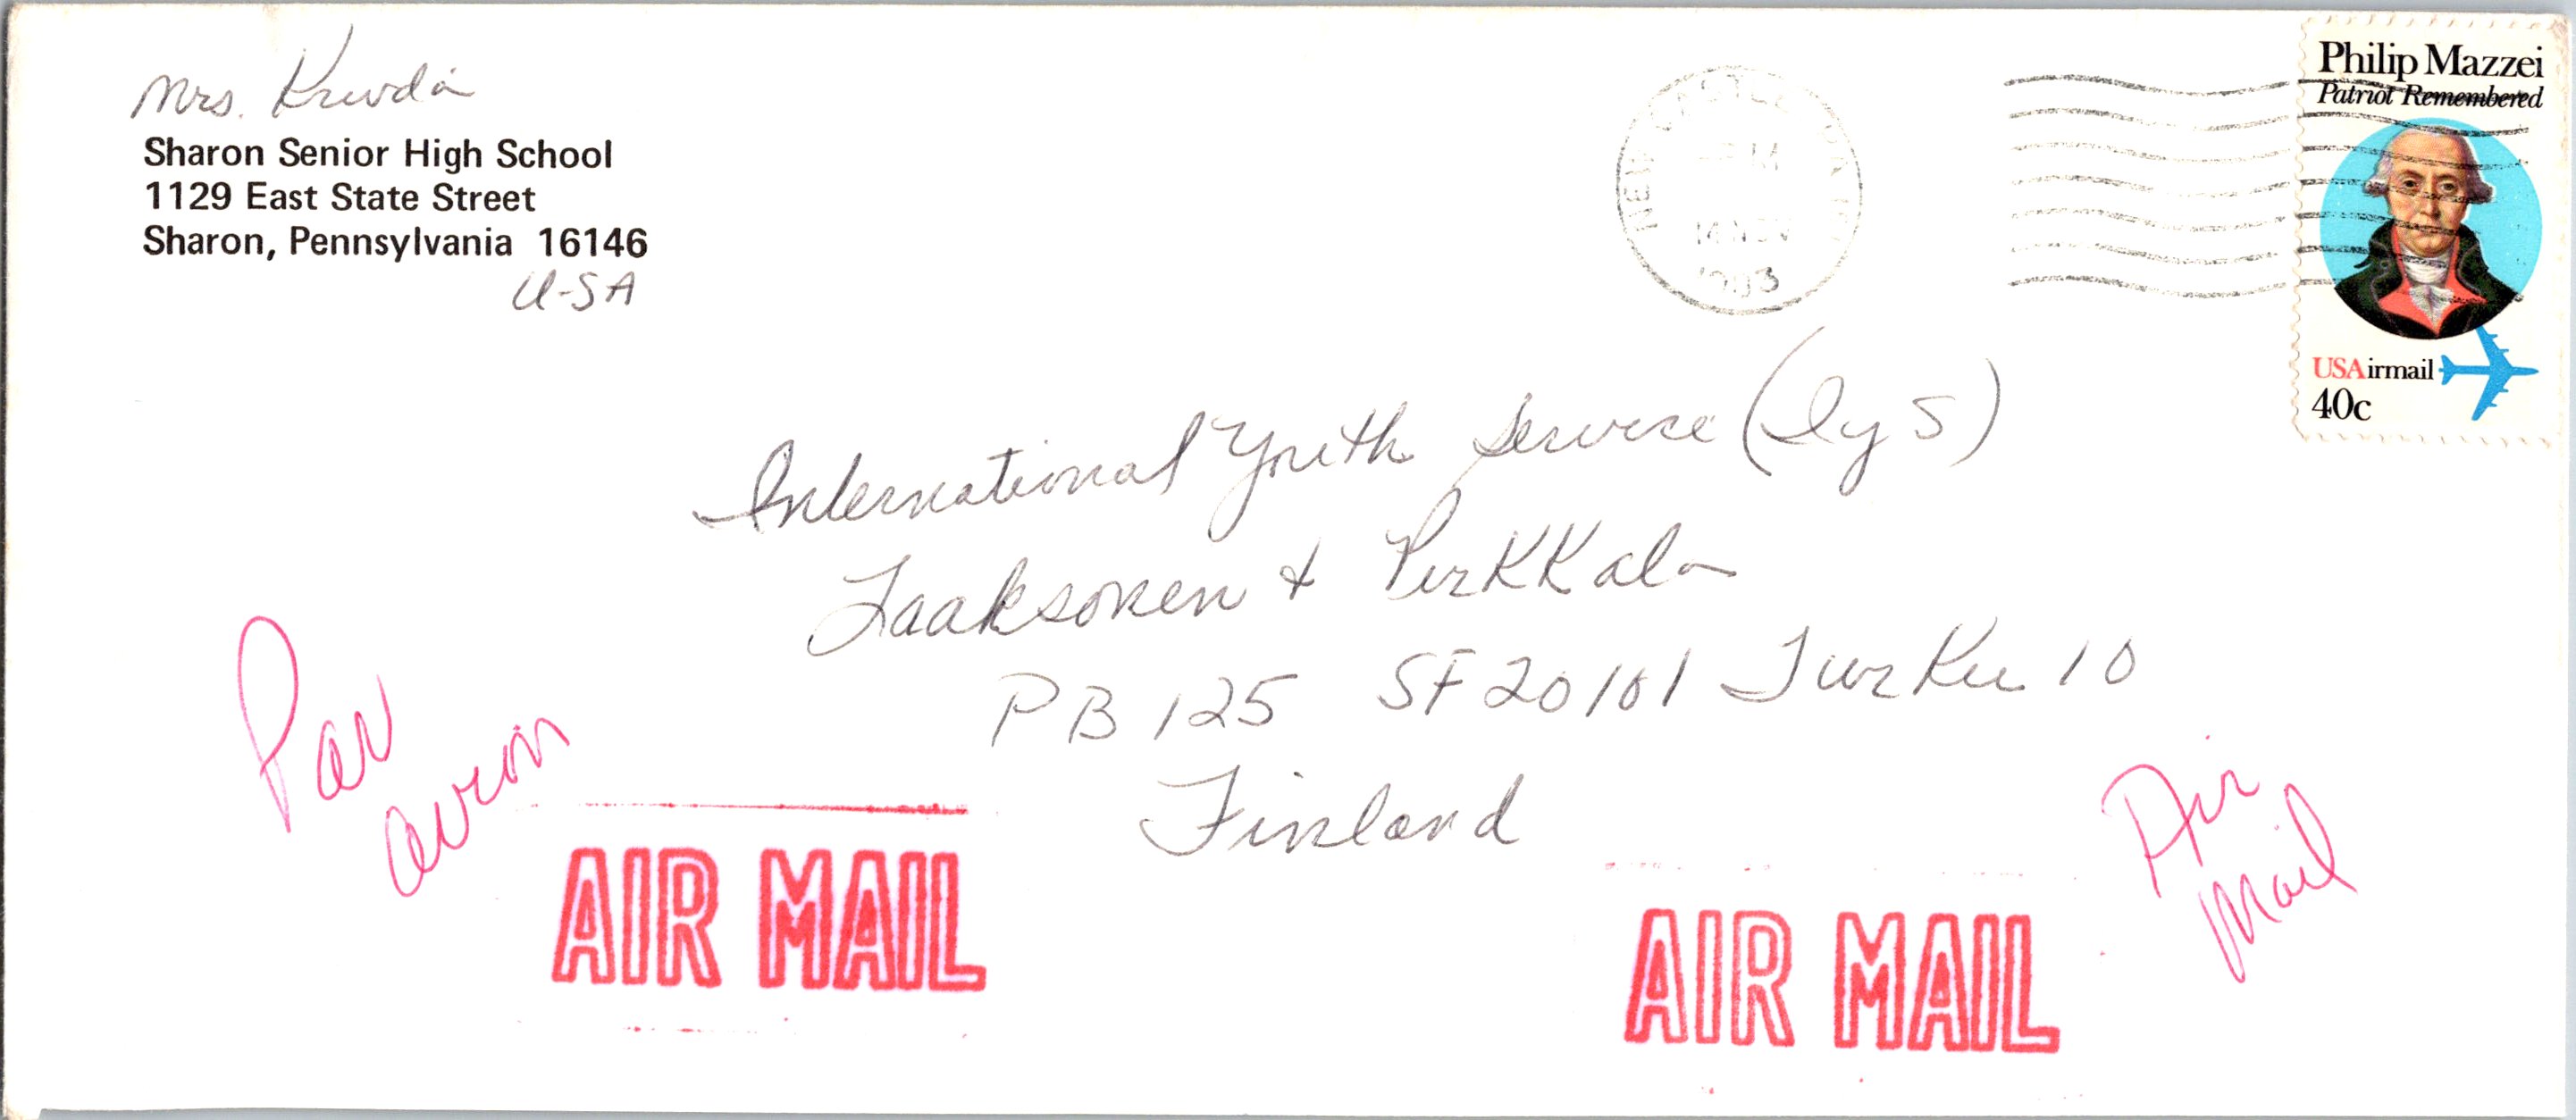 Mrs. Krivda
Sharon Senior High School
1129 East State Street
Sharon, Pennsylvania 16146
U-SA
NEW CASTLE PA
PM
14 NOV
1983
Philip Mazzei
Patriot Remembered
USAirmail
40c
International Youth Service (Iy S)
Laaksonen & PirKKala
PB 125 SF 20101 TurKu 10
Finland
Par
avion
AIR MAIL
Air
Mail
AIR MAIL